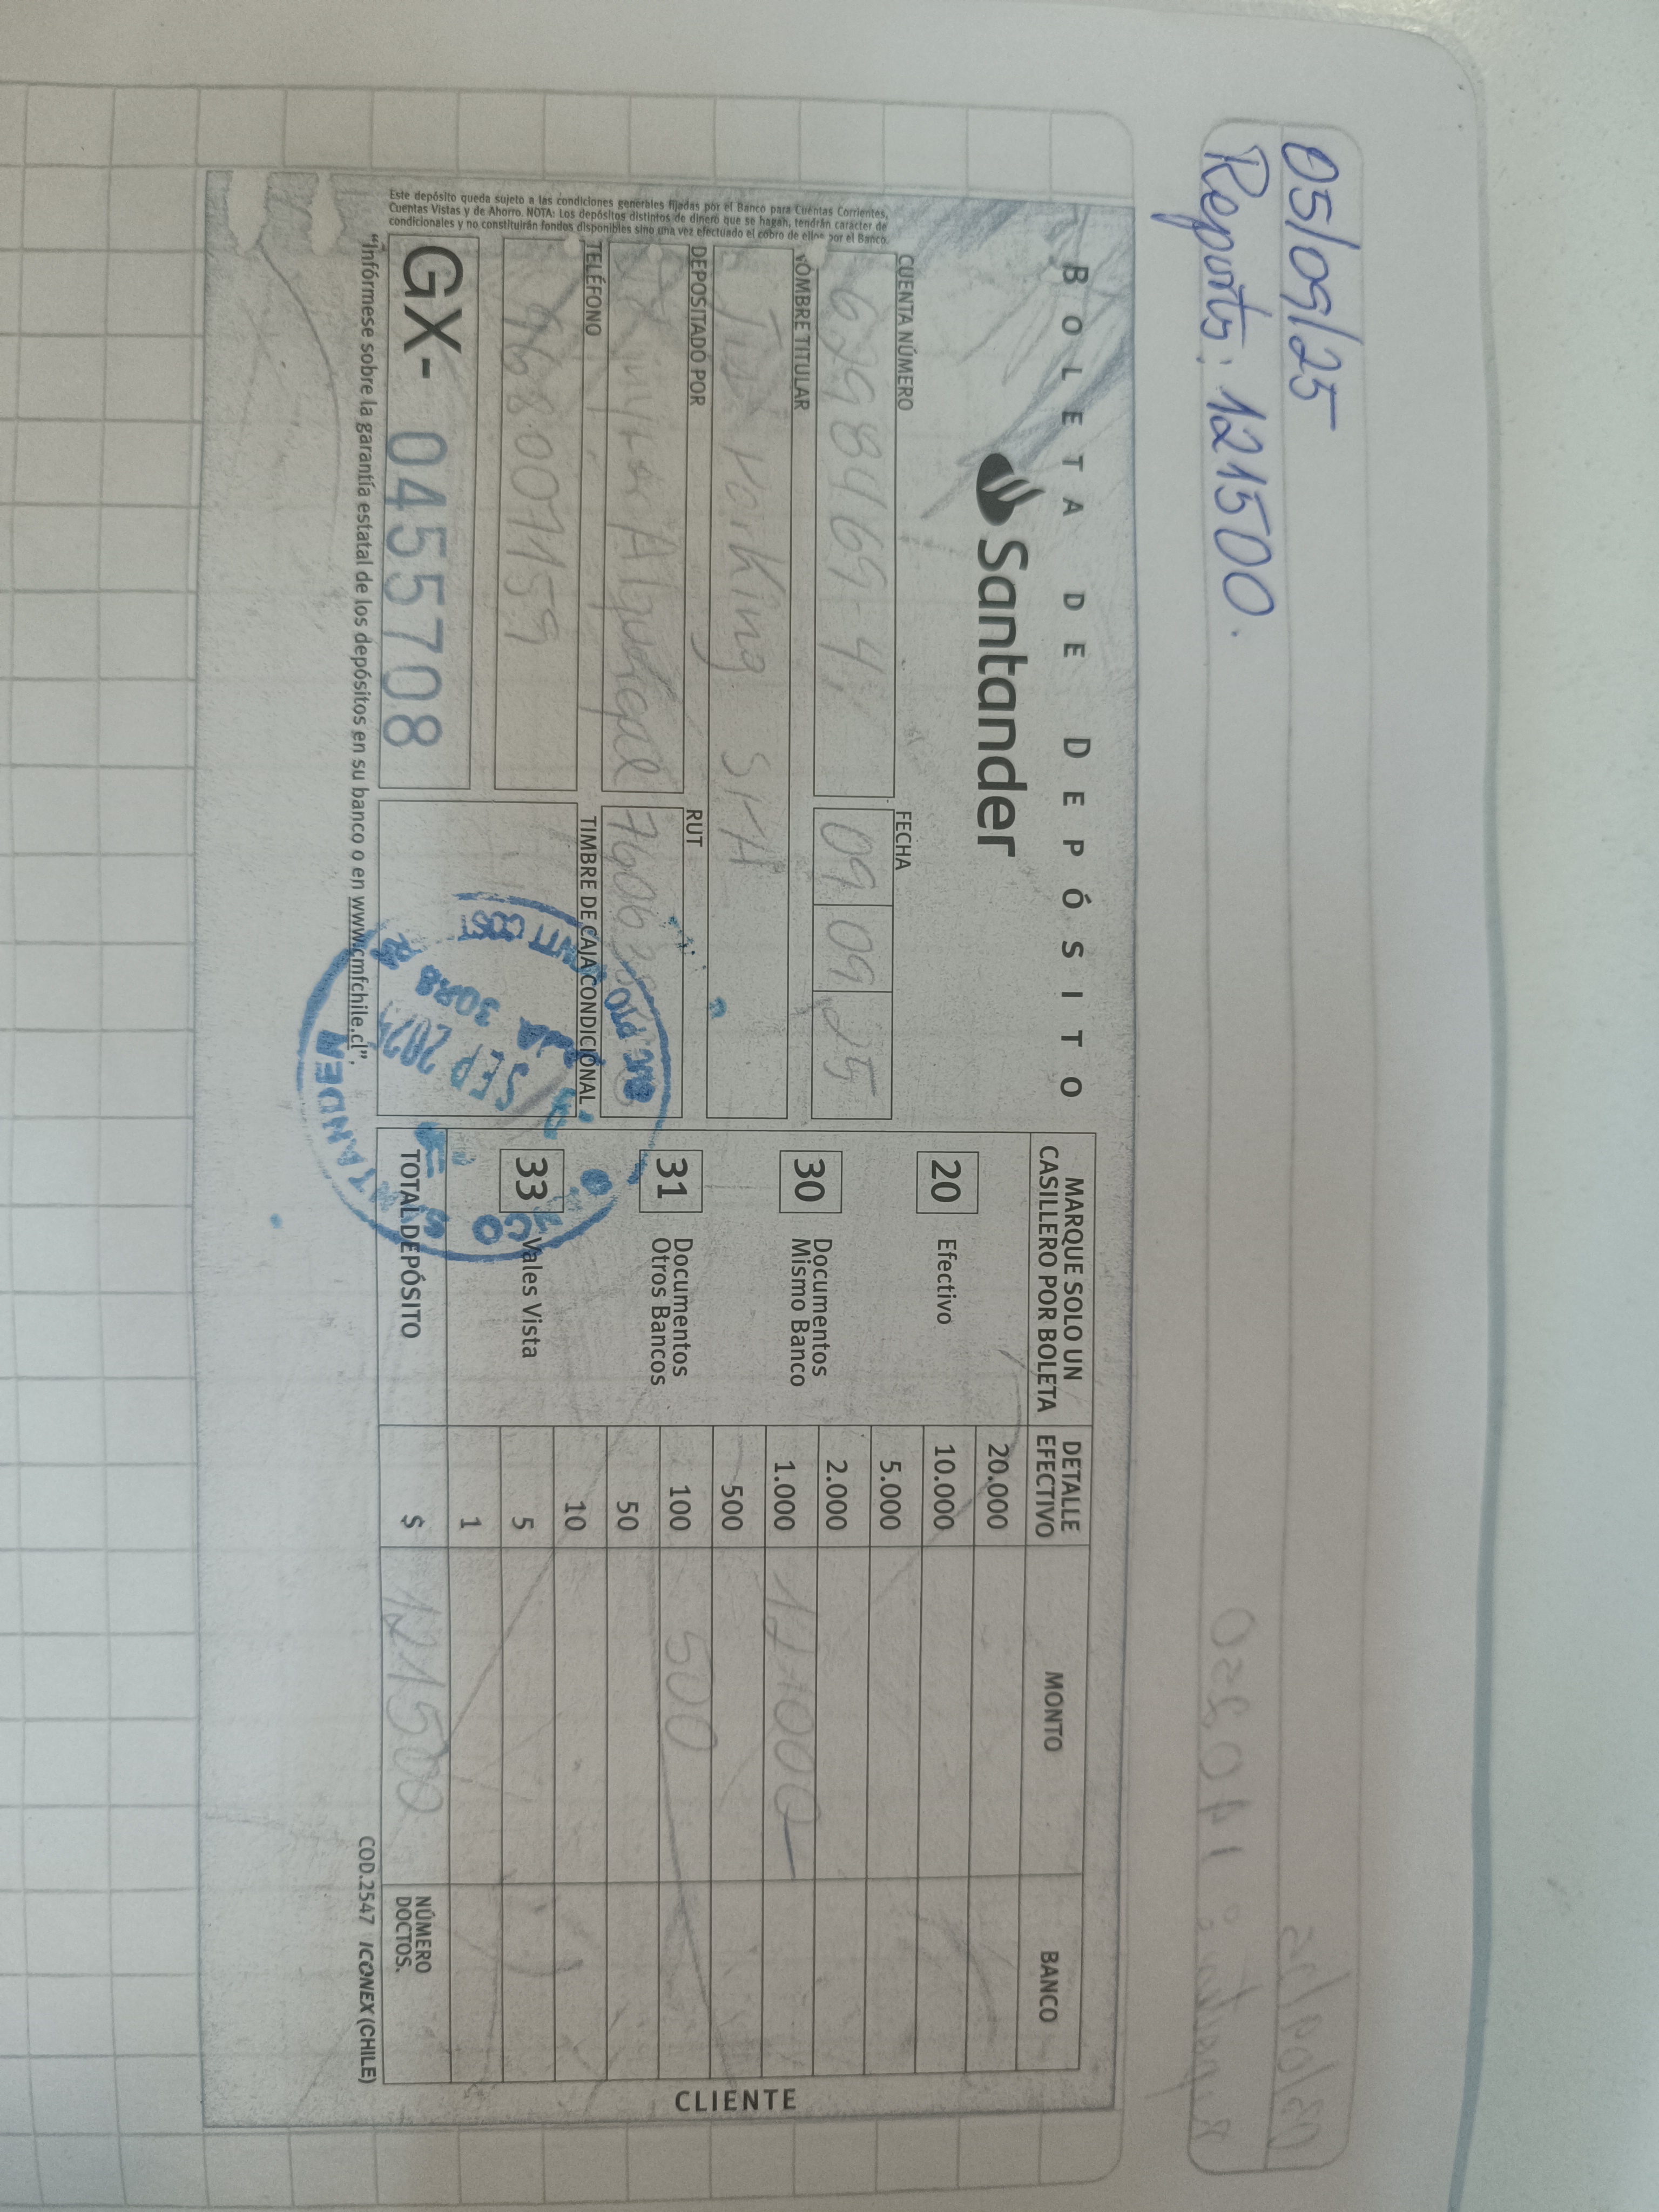 05/09/25
Reporte: 121500.
BOLETA DE DEPÓSITO
Santander
CUENTA NÚMERO
FECHA
6298469-4
09 09 25
NOMBRE TITULAR
Parking SMH
DEPOSITADO POR
RUT
TELÉFONO
968007159
TIMBRE DE CAJA CONDICIONAL
SEP 2025
GX- 0455708
Este depósito queda sujeto a las condiciones generales fijadas por el Banco para Cuentas Corrientes,
Cuentas Vistas y de Ahorro. NOTA: Los depósitos distintos de dinero que se hagan, tendrán carácter de
condicionales y no constituirán fondos disponibles sino una vez efectuado el cobro de ellos por el Banco.
"Infórmese sobre la garantía estatal de los depósitos en su banco o en www.cmfchile.cl".
MARQUE SOLO UN
CASILLERO POR BOLETA
DETALLE
EFECTIVO
MONTO
BANCO
20 Efectivo
30 Documentos
Mismo Banco
31 Documentos
Otros Bancos
33 Vales Vista
20.000
10.000
5.000
2.000
1.000 121000
500
100 500
50
10
5
1
TOTAL DEPÓSITO $ 121500
NÚMERO
DOCTOS.
COD.2547 ICONEX (CHILE)
CLIENTE